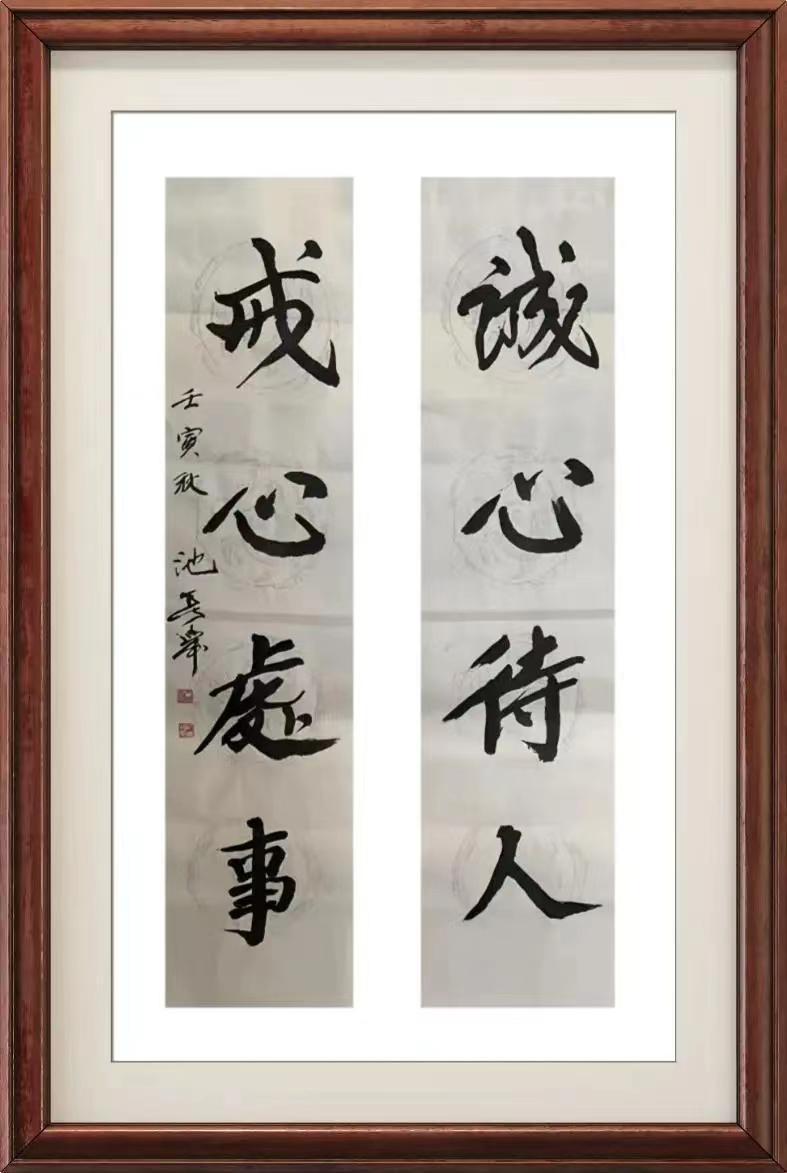 誠心待人
戒心處事
壬寅秋 池長舉